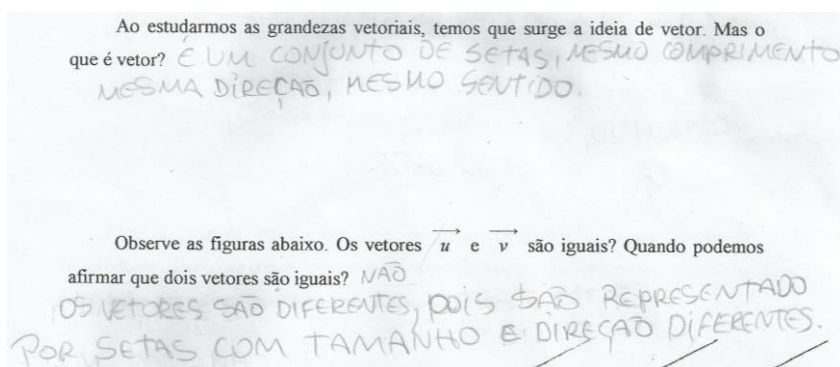 Ao estudarmos as grandezas vetoriais, temos que surge a ideia de vetor. Mas o
que é vetor? É UM CONJUNTO DE SETAS, MESMO COMPRIMENTO
MESMA DIREÇÃO, MESMO SENTIDO.
Observe as figuras abaixo. Os vetores u e v são iguais? Quando podemos
afirmar que dois vetores são iguais? NÃO
OS VETORES SÃO DIFERENTES, POIS SÃO REPRESENTADO
POR SETAS COM TAMANHO E DIREÇÃO DIFERENTES.